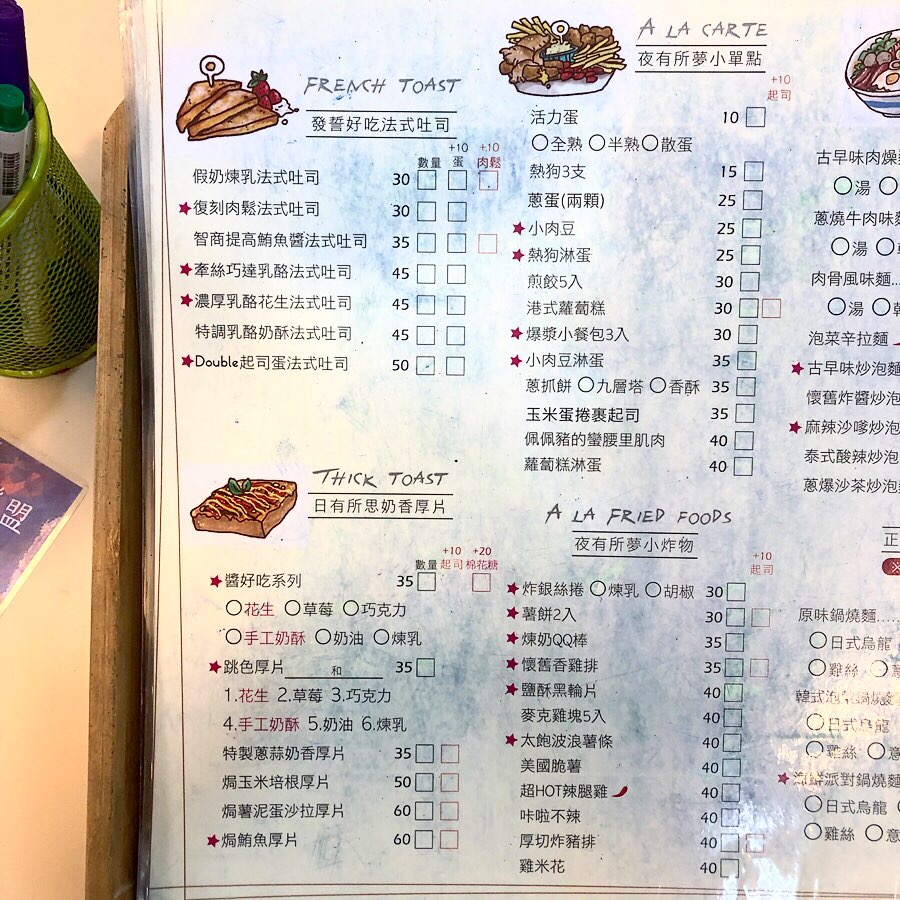 FRENCH TOAST
發誓好吃法式吐司
+10 +10
數量 蛋 肉鬆
假奶煉乳法式吐司 30
★復刻肉鬆法式吐司 30
智商提高鮪魚醬法式吐司 35
★牽絲巧達乳酪法式吐司 45
★濃厚乳酪花生法式吐司 45
特調乳酪奶酥法式吐司 45
★Double起司蛋法式吐司 50
THICK TOAST
日有所思奶香厚片
+10 +20
數量 起司 棉花糖
★醬好吃系列 35
○花生 ○草莓 ○巧克力
○手工奶酥 ○奶油 ○煉乳
★跳色厚片 和 35
1.花生 2.草莓 3.巧克力
4.手工奶酥 5.奶油 6.煉乳
特製蔥蒜奶香厚片 35
焗玉米培根厚片 50
焗薯泥蛋沙拉厚片 60
★焗鮪魚厚片 60
A LA CARTE
夜有所夢小單點
+10
起司
活力蛋 10
○全熟 ○半熟 ○散蛋
熱狗3支 15
蔥蛋(兩顆) 25
★小肉豆 25
★熱狗淋蛋 25
煎餃5入 30
港式蘿蔔糕 30
★爆漿小餐包3入 30
★小肉豆淋蛋 35
蔥抓餅 ○九層塔 ○香酥 35
玉米蛋捲裹起司 35
佩佩豬的蠻腰里肌肉 40
蘿蔔糕淋蛋 40
A LA FRIED FOODS
夜有所夢小炸物
+10
起司
★炸銀絲捲 ○煉乳 ○胡椒 30
★薯餅2入 30
★煉奶QQ棒 35
★懷舊香雞排 35
★鹽酥黑輪片 40
麥克雞塊5入 40
★太飽波浪薯條 40
美國脆薯 40
超HOT辣腿雞 40
咔啦不辣 40
厚切炸豬排 40
雞米花 40
古早味肉燥
○湯 ○
蔥燒牛肉味
○湯 ○
肉骨風味麵...
○湯 ○
泡菜辛拉麵
★古早味炒泡麵
懷舊炸醬炒泡
★麻辣沙嗲炒泡
泰式酸辣炒泡
蔥爆沙茶炒泡
正
原味鍋燒麵......
○日式烏龍
○雞絲 ○意
韓式泡菜鍋燒麵
○日式烏龍
○雞絲 ○意
★海鮮派對鍋燒麵
○日式烏龍
○雞絲 ○意
盟